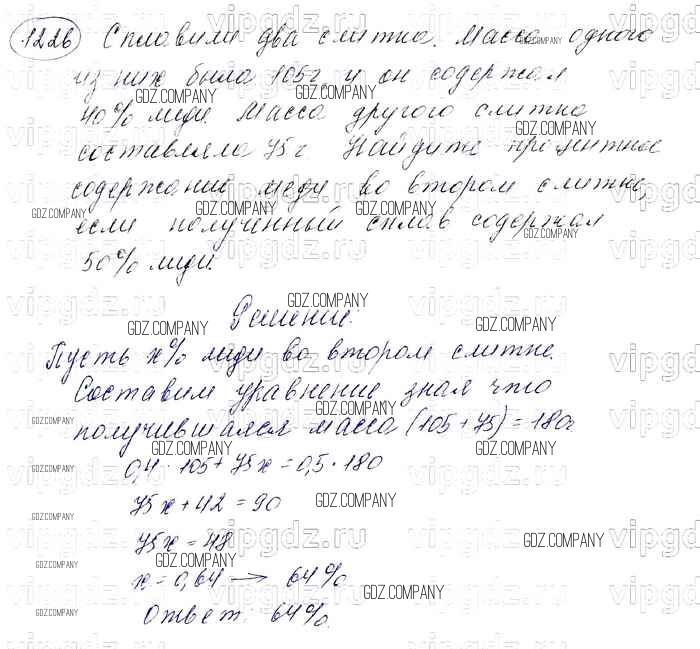 1226 Сплавили два слитка. Масса одного
из них была 105г и он содержал
40% меди Масса другого слитка
составляла 75г Найдите процентное
содержание меди во втором слитке,
если полученный сплав содержал
50% меди.
Решение:
Пусть x% меди во втором слитке.
Составим уравнение зная что
получившаяся масса (105+75)=180г
0,4·105+75x=0,5·180
75x+42=90
75x=48
x=0,64 → 64%
Ответ 64%.